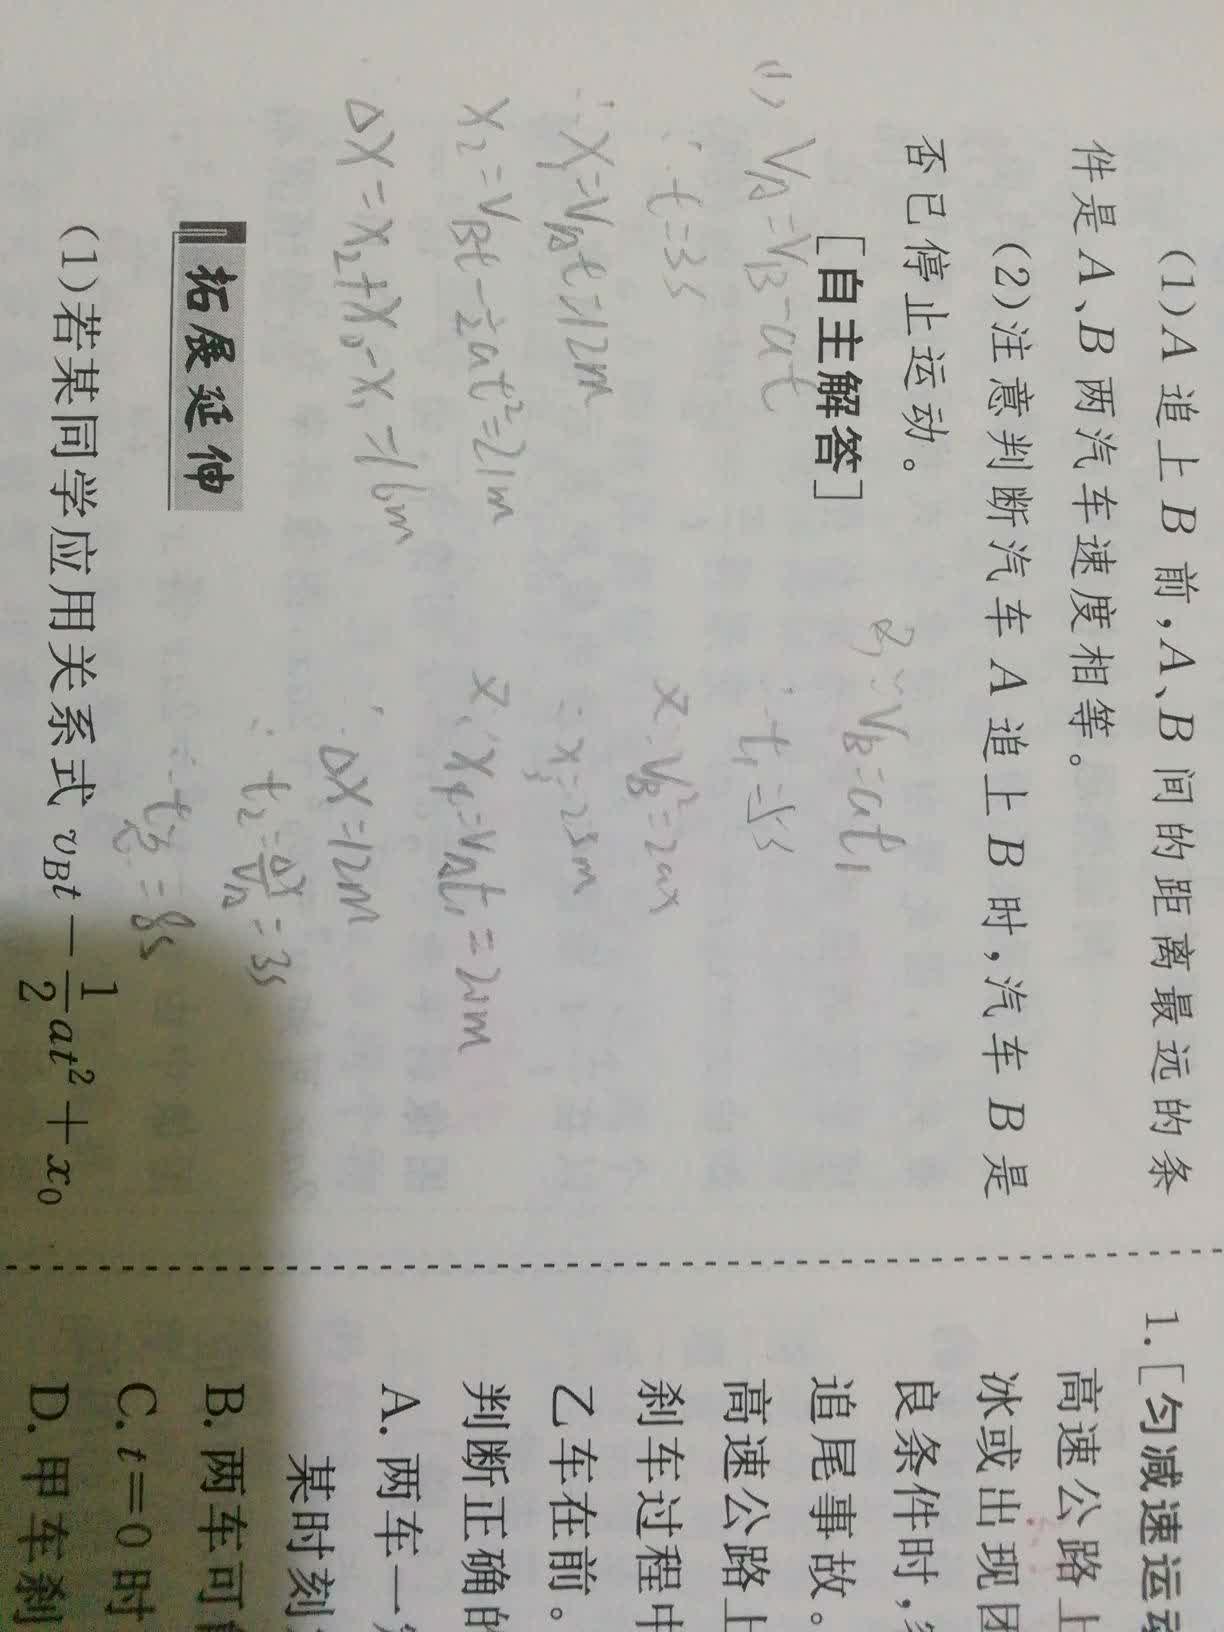 (1)A 追上 B 前,A、B 间的距离最远的条
件是 A、B 两汽车速度相等。
(2)注意判断汽车 A 追上 B 时,汽车 B 是
否已停止运动。
[自主解答]
(1) V_A=V_B-at
∴t=3s
∴X₁=V_At=12m
X₂=V_Bt-½at²=21m
ΔX=X₂+X₀-X₁=16m
2) ∵V_B=at₁
∴t₁=5s
又∵V_B²=2ax
=X₃=25m
又∵X₄=V_At₁=20m
∴ΔX=12m
∴t₂=ΔX/V_A=3s
∴t总=8s
拓展延伸
(1)若某同学应用关系式 v_Bt-1/2at²+x₀
1.[匀减速运动
高速公路上
冰或出现团
良条件时,
追尾事故。
高速公路上
刹车过程中
乙车在前。
判断正确的
A. 两车一
某时刻
B. 两车可
C. t=0 时
D. 甲车刹